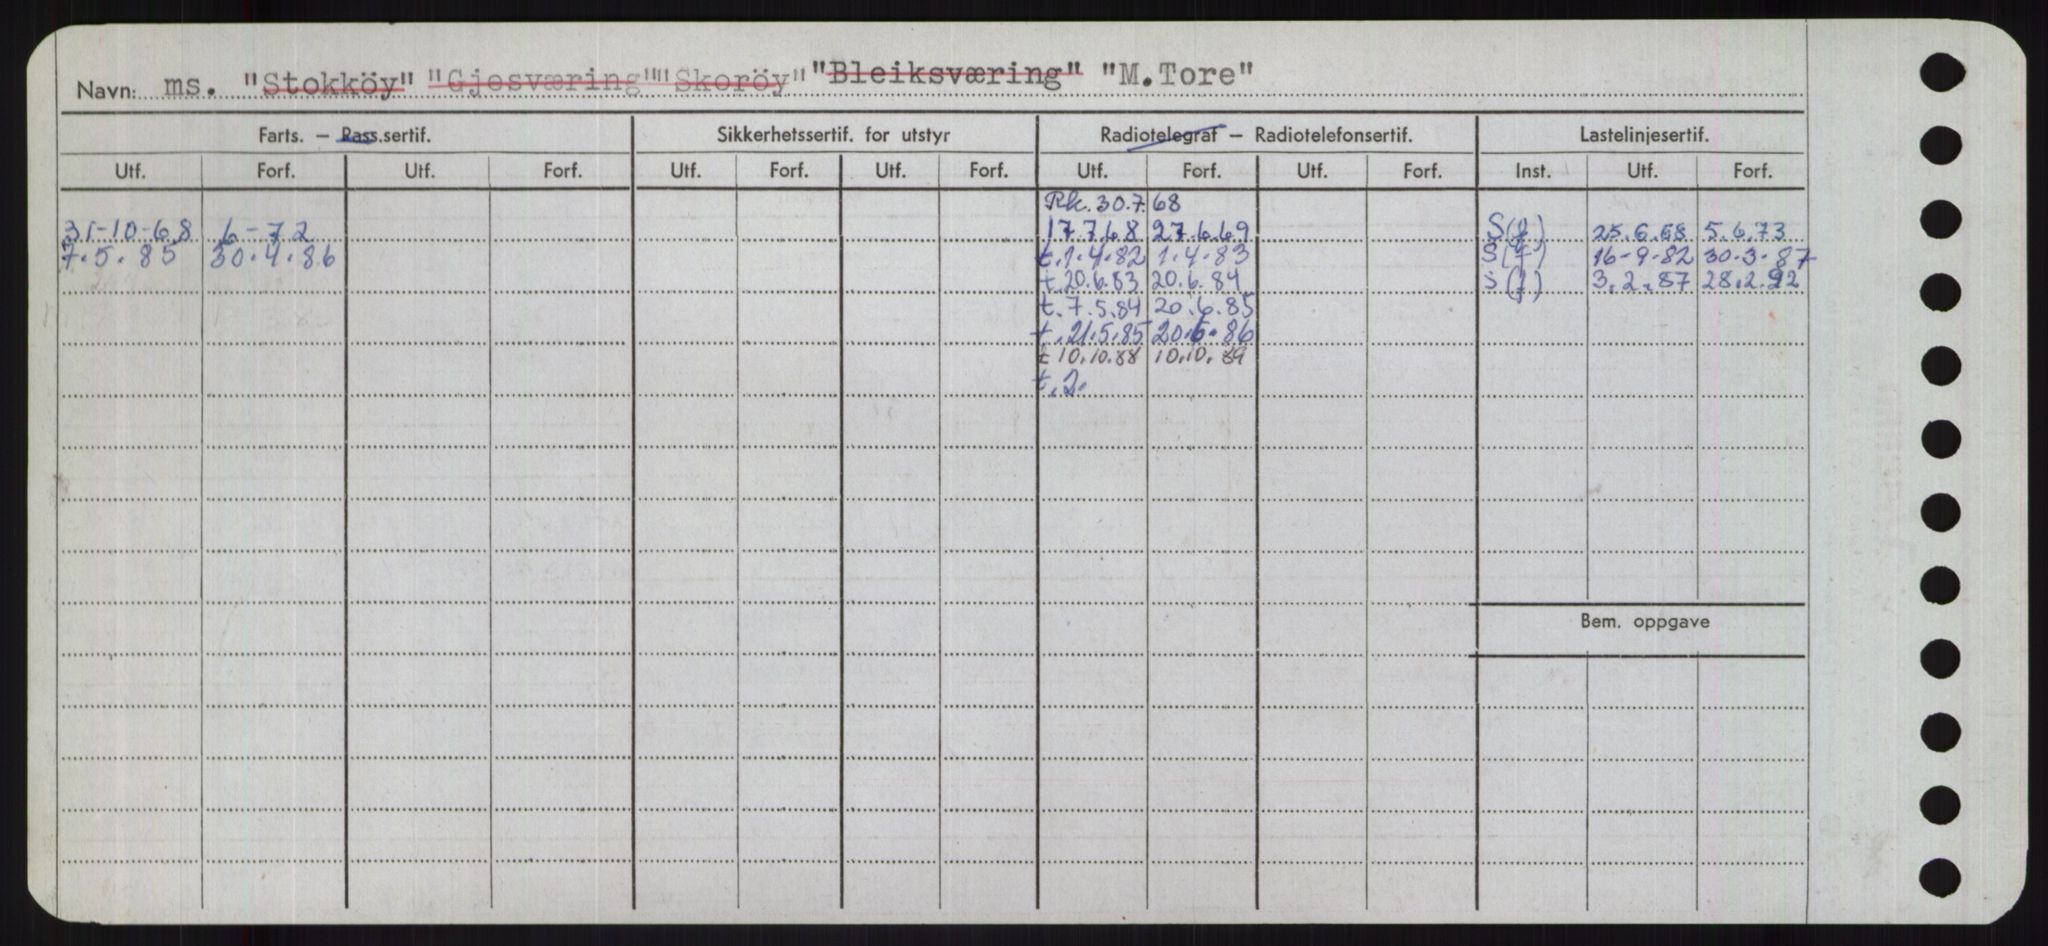 Navn: ms. "Stokköy" "Gjesværing" "Skoröy" "Bleiksværing" "M.Tore"
Farts. — Pass.sertif. Sikkerhetssertif. for utstyr Radiotelegraf — Radiotelefonsertif. Lastelinjesertif.
Utf. Forf. Utf. Forf. Utf. Forf. Utf. Forf. Utf. Forf. Utf. Forf. Inst. Utf. Forf.
Rk. 30.7.68
31-10-68 6-72 17.7.68 27.6.69 25.6.68 5.6.73
7.5.85 30.4.86 t.1.4.82 1.4.83 16-9-82 30-3-87
t.20.6.83 20.6.84 3.2.87 28.2.92
t.7.5.84 20.6.85
t.21.5.85 20.6.86
t 10.10.88 10.10.89
t.2.
Bem. oppgave